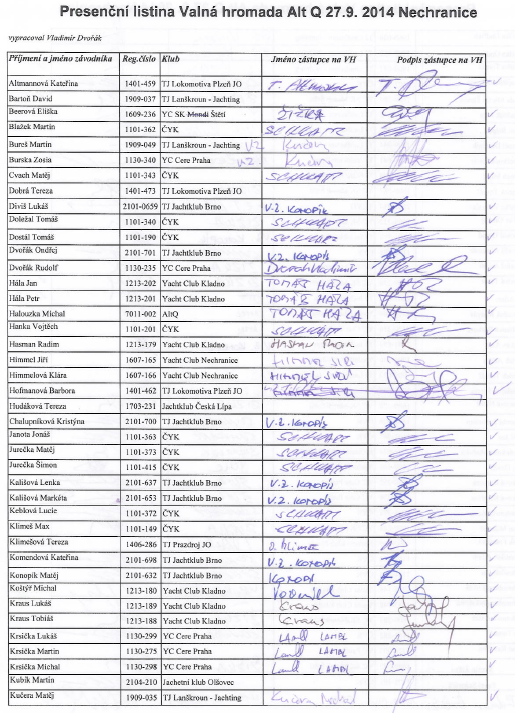 Presenční listina Valná hromada Alt Q 27.9. 2014 Nechranice
vypracoval Vladimír Dvořák
Příjmení a jméno závodníka Reg.číslo Klub Jméno zástupce na VH Podpis zástupce na VH
Altmannová Kateřina 1401-459 TJ Lokomotiva Plzeň JO
Bartoň David 1909-037 TJ Lanškroun - Jachting
Beerová Eliška 1609-236 YC SK Mondi Štětí ŽIŽKA
Blažek Martin 1101-362 ČYK SCHWARZ
Bureš Martin 1909-049 TJ Lanškroun - Jachting VZ Kučera
Burska Zosia 1130-340 YC Cere Praha VZ Kučera
Cvach Matěj 1101-343 ČYK SCHWARZ
Dobrá Tereza 1401-473 TJ Lokomotiva Plzeň JO
Diviš Lukáš 2101-0659 TJ Jachtklub Brno V.Z. KONOPÍK
Doležal Tomáš 1101-340 ČYK SCHWARZ
Dostál Tomáš 1101-190 ČYK SCHWARZ
Dvořák Ondřej 2101-701 TJ Jachtklub Brno V.Z. KONOPÍK
Dvořák Rudolf 1130-235 YC Cere Praha Dvořák Vladimír
Hála Jan 1213-202 Yacht Club Kladno TOMÁŠ HÁLA
Hála Petr 1213-201 Yacht Club Kladno TOMÁŠ HÁLA
Halouzka Michal 7011-002 AltQ TOMÁŠ HÁLA
Hanka Vojtěch 1101-201 ČYK SCHWARZ
Hasman Radim 1213-179 Yacht Club Kladno HASMAN RADIM
Himmel Jiří 1607-165 Yacht Club Nechranice HIMMEL JIŘÍ
Himmelová Klára 1607-166 Yacht Club Nechranice HIMMEL JIŘÍ
Hofmanová Barbora 1401-462 TJ Lokomotiva Plzeň JO
Hudáková Tereza 1703-231 Jachtklub Česká Lípa
Chalupníková Kristýna 2101-700 TJ Jachtklub Brno V.Z. KONOPÍK
Janota Jonáš 1101-363 ČYK SCHWARZ
Jurečka Matěj 1101-373 ČYK SCHWARZ
Jurečka Šimon 1101-415 ČYK SCHWARZ
Kališová Lenka 2101-637 TJ Jachtklub Brno V.Z. KONOPÍK
Kališová Markéta 2101-653 TJ Jachtklub Brno V.Z. KONOPÍK
Keblová Lucie 1101-372 ČYK SCHWARZ
Klimeš Max 1101-149 ČYK SCHWARZ
Klimešová Tereza 1406-286 TJ Prazdroj JO
Komendová Kateřina 2101-698 TJ Jachtklub Brno V.Z. KONOPÍK
Konopík Matěj 2101-632 TJ Jachtklub Brno KONOPÍK
Koštýř Michal 1213-180 Yacht Club Kladno
Kraus Lukáš 1213-189 Yacht Club Kladno Kraus
Kraus Tobiáš 1213-188 Yacht Club Kladno Kraus
Krsička Lukáš 1130-299 YC Cere Praha
Krsička Martin 1130-275 YC Cere Praha
Krsička Michal 1130-298 YC Cere Praha
Kubík Martin 2104-210 Jachetní klub Olšovec
Kučera Matěj 1909-035 TJ Lanškroun - Jachting Kučera Michal